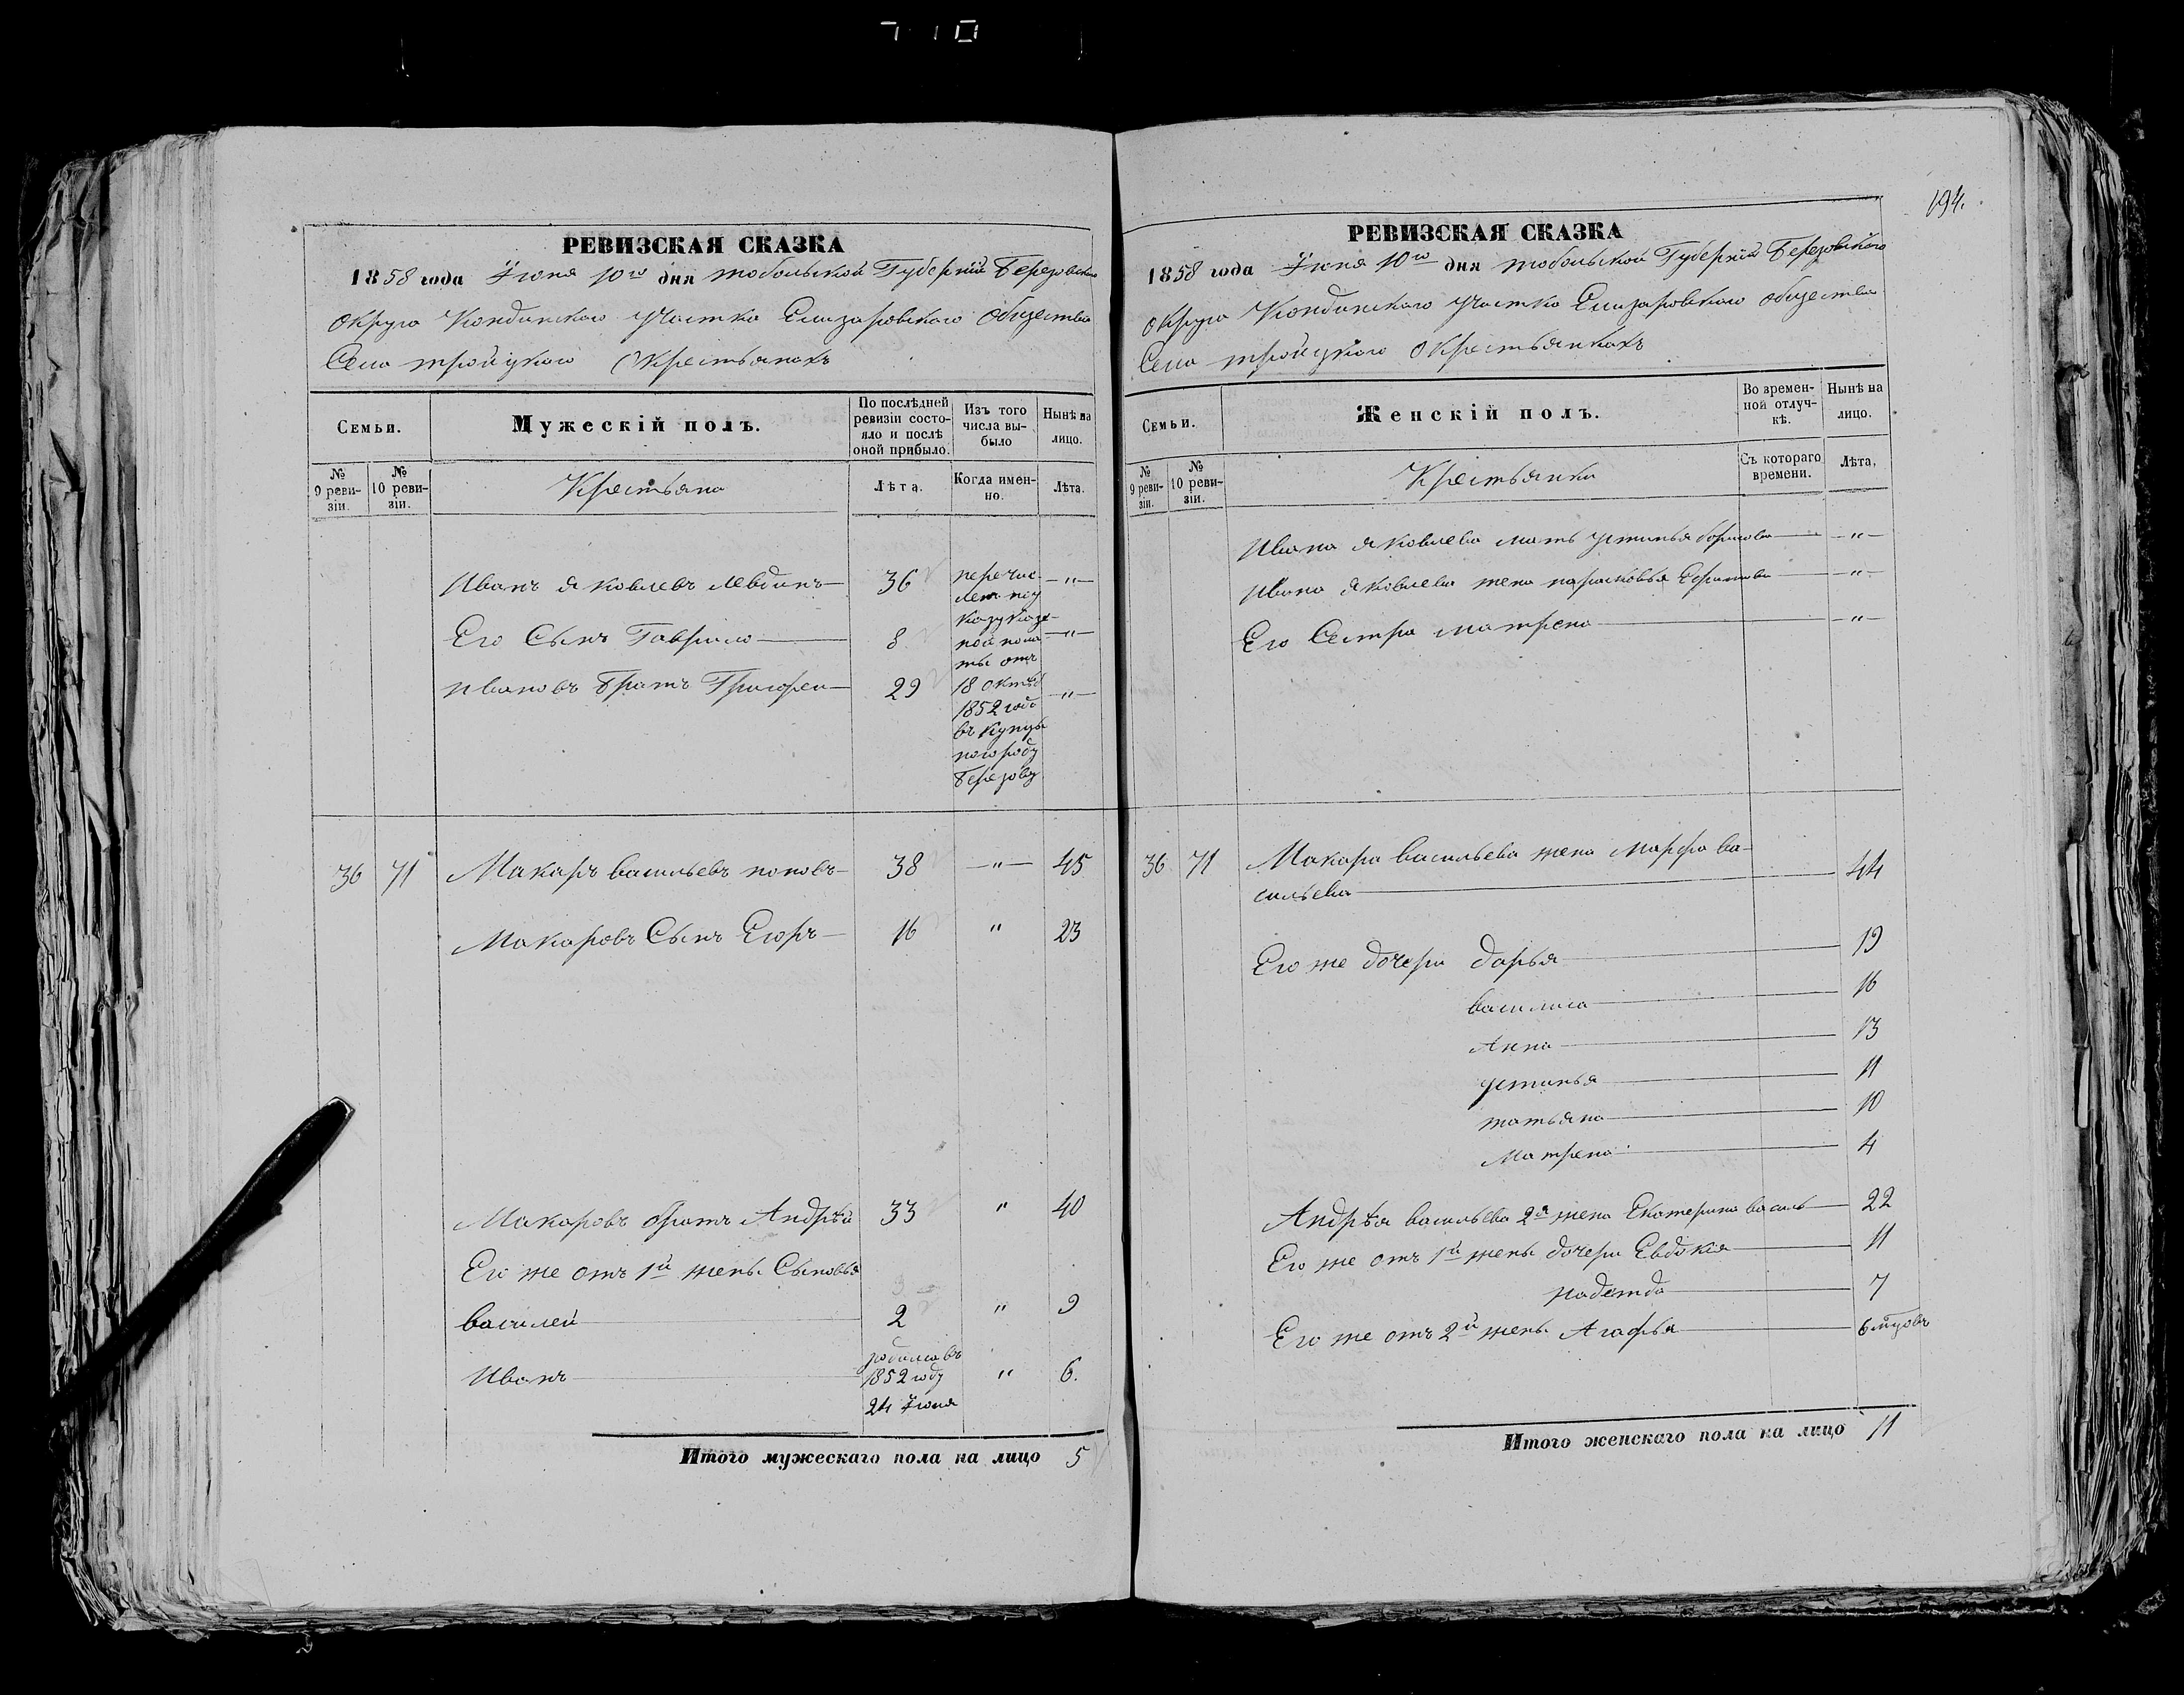 710
РЕВИЗСКАЯ СКАЗКА
1858 года Іюня 10го дня тобольской Губерніи Березовскаго
округа Кондинскаго участка Елизаровскаго общества
Села тройцкаго О Крестьянахъ
Семьи.
Мужескій полъ.
По послѣдней ревизіи состояло и послѣ оной прибыло.
Изъ того числа выбыло
Нынѣ на лицо.
№ 9 ревизіи.
№ 10 ревизіи.
Крестьяна
Лѣта.
Когда именно.
Лѣта.
Иванъ Яковлевъ Левдинъ 36 "
Его Сынъ Гаврило 8 "
Ивановъ братъ Григореи 29 "
перечис
лен по у
казу казе
ной пала
ты отъ
18 октяб
1852 года
въ купцы
по городу
Березову
36 71 Макаръ васильевъ поповъ 38 " 45
Макаровъ Сынъ Егоръ 16 " 23
Макаровъ братъ Андрѣй 33 " 40
Его же отъ 1й жены Сыновья
василей 2 " 9
Иванъ родился въ 1852 году 24 Іюня " 6.
Итого мужескаго пола на лицо 5
194.
РЕВИЗСКАЯ СКАЗКА
1858 года Іюня 10го дня тобольской Губерніи Березовскаго
округа Кондинскаго участка Елизаровскаго общества
Села тройцкаго О Крестьянкахъ
Семьи.
Женскій полъ.
Во времен-
ной отлуч-
кѣ.
Нынѣ на
лицо.
№ 9 реви-
зіи.
№ 10 реви-
зіи.
Крестьянки
Съ котораго
времени.
Лѣта,
Ивана Яковлева мать устинья борисова "
Ивана Яковлева жена парасковья Ефимова "
Его Сестра матрена "
36 71 Макара васильева жена марфа ва-
сильева 44
Его же дочери дарья 19
василиса 16
Анна 13
устинья 11
татьяна 10
Матрена 4
Андрѣя васильева 2я жена Екатерина василь 22
Его же отъ 1й жены дочери Евдокія 11
надежда 7
Его же отъ 2й жены Агафья 6 мцовъ
Итого женскаго пола на лицо 11